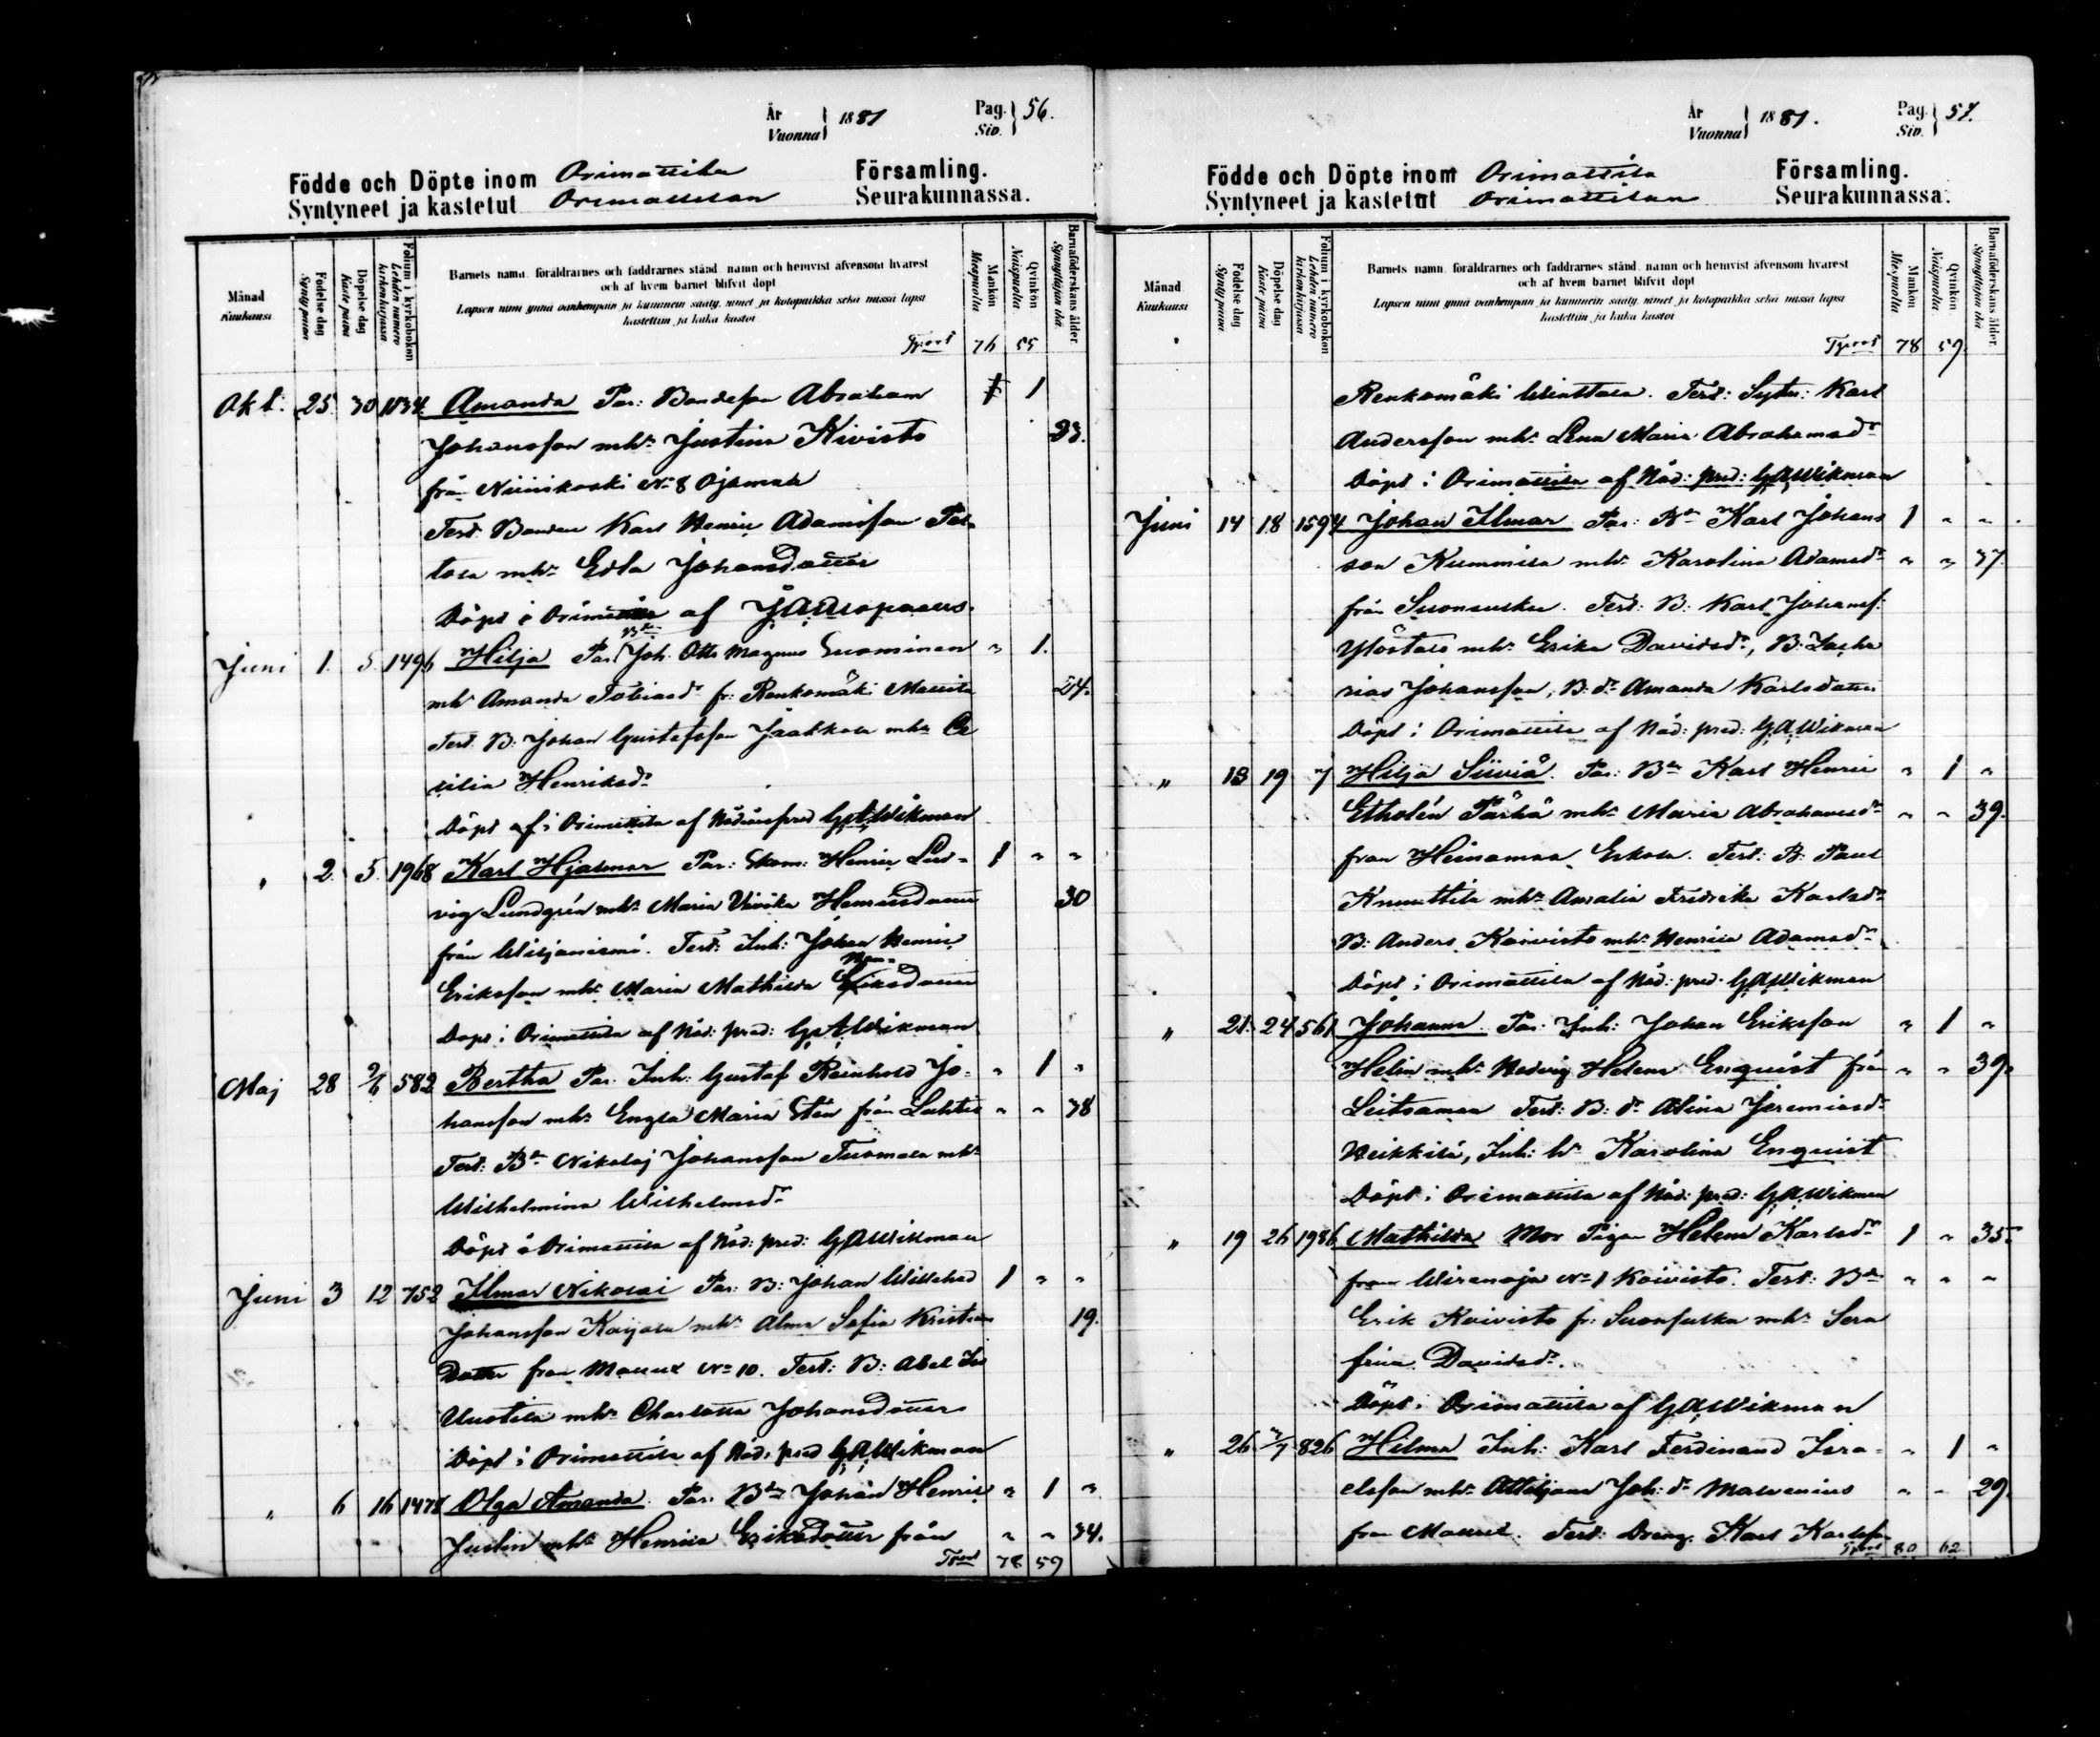 År
Vuonna
1881
Pag.
Siv.
56.
Födde och Döpte inom Orimattila Församling.
Syntyneet ja kastetut Orimattilan Seurakunnassa.
Månad
Kuukausi
Födelse dag
Synty päivä
Döpelse dag
Kaste päivä
Folium i kyrkoboken
Lehden numero kirkonkirjassa
Barnets namn, föräldrarnes och faddrarnes stånd, namn och hemvist äfvensom hvarest
och af hvem barnet blifvit döpt
Lapsen nimi ynnä vanhempain ja kummein sääty, nimet ja kotopaikka sekä missä lapsi
kastettiin ja kuka kastoi
Mankön
Miespuolia
Qvinkön
Naispuolia
Barnaföderskans ålder.
Synnyttäjän ikä.
Tport 76 55
Okt. 25 30 1834 Amanda Par: Bondeson Abraham 1
Johansson mhu Justina Kivistö 23.
från Niinikoski No 8 Ojamaa
Test. Bonden Karl Henric Adamsson
mhu Edla Johansdotter
Döpt i Orimattila af
Juni 1. 5. 1496 Hilja Par. Bdn Joh. Otto Magnus Suominen " 1.
mhu Amanda Tobiasdr fr. Renkomäki Mattila 24.
Test. B: Johan Gustafsson Jaakkola mhu Ce
cilia Henriksdr
Döpt af i Orimattila af Nådårspred GAWikman
" 2. 5. 1968 Karl Hjalmar Par: Skom: Henric Lud- 1 " "
vig Lundgrén mhu Maria Viivika Henricsdotter 30
från Viljaniemi. Test: Inh: Johan Henric
Eriksson mhu Maria Mathilda Eriksdotter
Döpt i Orimattila af Nåd: pred: GAWikman
Maj 28 9/6 582 Bertha Par. Inh: Gustaf Reinhold Jo- " 1 "
hansson mhu Engla Maria Stén från Luhtis " " 38
Test: Bdn Nikolaj Johansson Tuomala mhu
Wilhelmina Wilhelmsdr
Döpt i Orimattila af Nåd: pred: GAWikman
Juni 3 12 752 Ilmar Nikolai Par: B: Johan Willehad 1 " "
Johansson Kaijala mhu Alma Sofia Kristians 19.
dotter från Mallusk No 10. Test: B: Abel
Uustila mhu Charlotta Johansdotter
Döpt i Orimattila af Nåd: pred GAWikman
" 6 16 1478 Olga Amanda. Par. Bdn Johan Henric " 1 "
Juslin mhu Henrica Eriksdotter från " " 34.
Tport 78 59
År
Vuonna
1881.
Pag.
Siv.
57.
Födde och Döpte inom Orimattila Församling.
Syntyneet ja kastetut Orimattilan Seurakunnassa.
Månad
Kuukausi
Födelse dag
Synty päivä
Döpelse dag
Kaste päivä
Folium i kyrkoboken
Lehden numero kirkonkirjassa
Barnets namn, föräldrarnes och faddrarnes stånd, namn och hemvist äfvensom hvarest
och af hvem barnet blifvit döpt
Lapsen nimi ynnä vanhempain ja kummein sääty, nimet ja kotopaikka sekä missä lapsi
kastettiin ja kuka kastoi
Mankön
Miespuolia
Qvinkön
Naispuolia
Barnaföderskans ålder.
Synnyttäjän ikä.
Tport 78 59.
Renkomäki Test: Sytn: Karl
Andersson mhu Lena Maria Abrahamsdr
Döpt i Orimattila af Nåd: pred: GAWikman
Juni 14 18 1594 Johan Ilmar Par: Bdn Karl Johans 1 " "
son Kummila mhu Karolina Adamsdr " " 37.
från Suonsuska. Test: B: Karl Johanss:
Ylöstalo mhu Erika Davidsdr, B: Zacha
rias Johansson, B: dr Amanda Karlsdotter
Döpt i Orimattila af Nåd: pred: GAWikman
" 13 19 7 Hilja Siiviä. Par: Bdn Karl Henric " 1 "
Etholén Pärhä mhu Maria Abrahamsdr " " 39.
från Heinamaa Erkola. Test: B: Paul
Knuuttila mhu Amalia Fredrika Karlsdr
B: Anders Koivisto mhu Henrica Adamsdr
Döpt i Orimattila af Nåd: pred: GAWikman
" 21. 24 561 Johanna Par: Inh: Johan Eriksson " 1 "
Helin mhu Hedvig Helena Enqvist från " " 39.
Leitsamaa Test: B: dr Alina Jeremiasdr
Heikkilä, Inh: hu Karolina Enquist
Döpt i Orimattila af Nåd: pred: GAWikman
" 19 26 1986 Mathilda Mor Pigan Helena Karlsdr 1 " 35.
från Wirenoja No 1 Koivisto. Test: Bdn " " "
Erik Koivisto fr: Suonsuska mhu Sera
fina Davidsdr.
Döpt i Orimattila af GAWikman
" 26 3/7 826 Hilma Inh: Karl Ferdinand Isra- " 1 "
elsson mhu Joh: dr Malvenius " - 29.
från Test: Dreng. Karl Karlsson
Tport 80 62